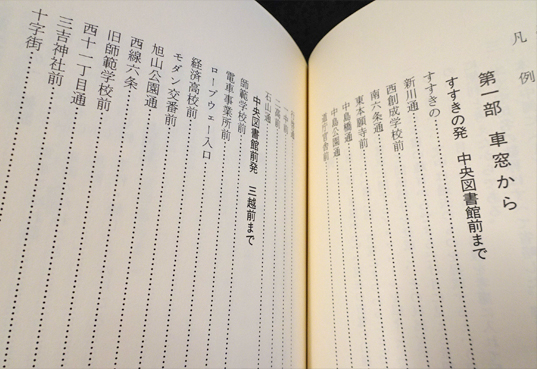 凡例
第一部 車窓から
すすきの発 中央図書館前まで
すすきの
新川通
西創成学校前
南六条通
東本願寺前
中島橋通
中島公園通
石山通
中央図書館前発 三越前まで
師範学校前
電車事業所前
ロープウェー入口
経済高校前
モダン交番前
旭山公園通
西線六条
旧師範学校前
西十一丁目通
三吉神社前
十字街